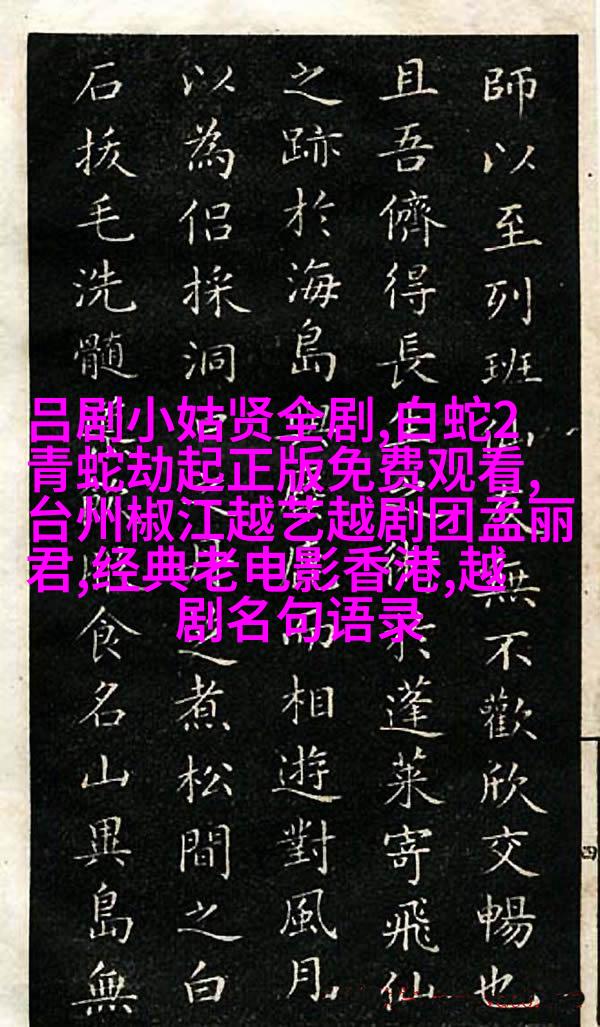 吕剧小姑贤全剧,白蛇2
青蛇劫起正版免费观看,
台州椒江越艺越剧团孟丽
君,经典老电影香港,越
剧名句语录
師以至列班無不歡欣交暢也
且吾儕得長於蓬萊寄飛仙
之跡於海島而相遊對風月
以為侶採洞之煮松間之白
石拔毛洗髓食名山異島無